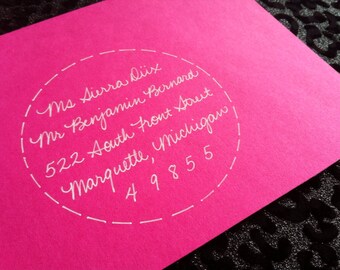 Ms Sierra Diix
Mr Benjamin Bernard
522 South Front Street
Marquette, Michigan
49855